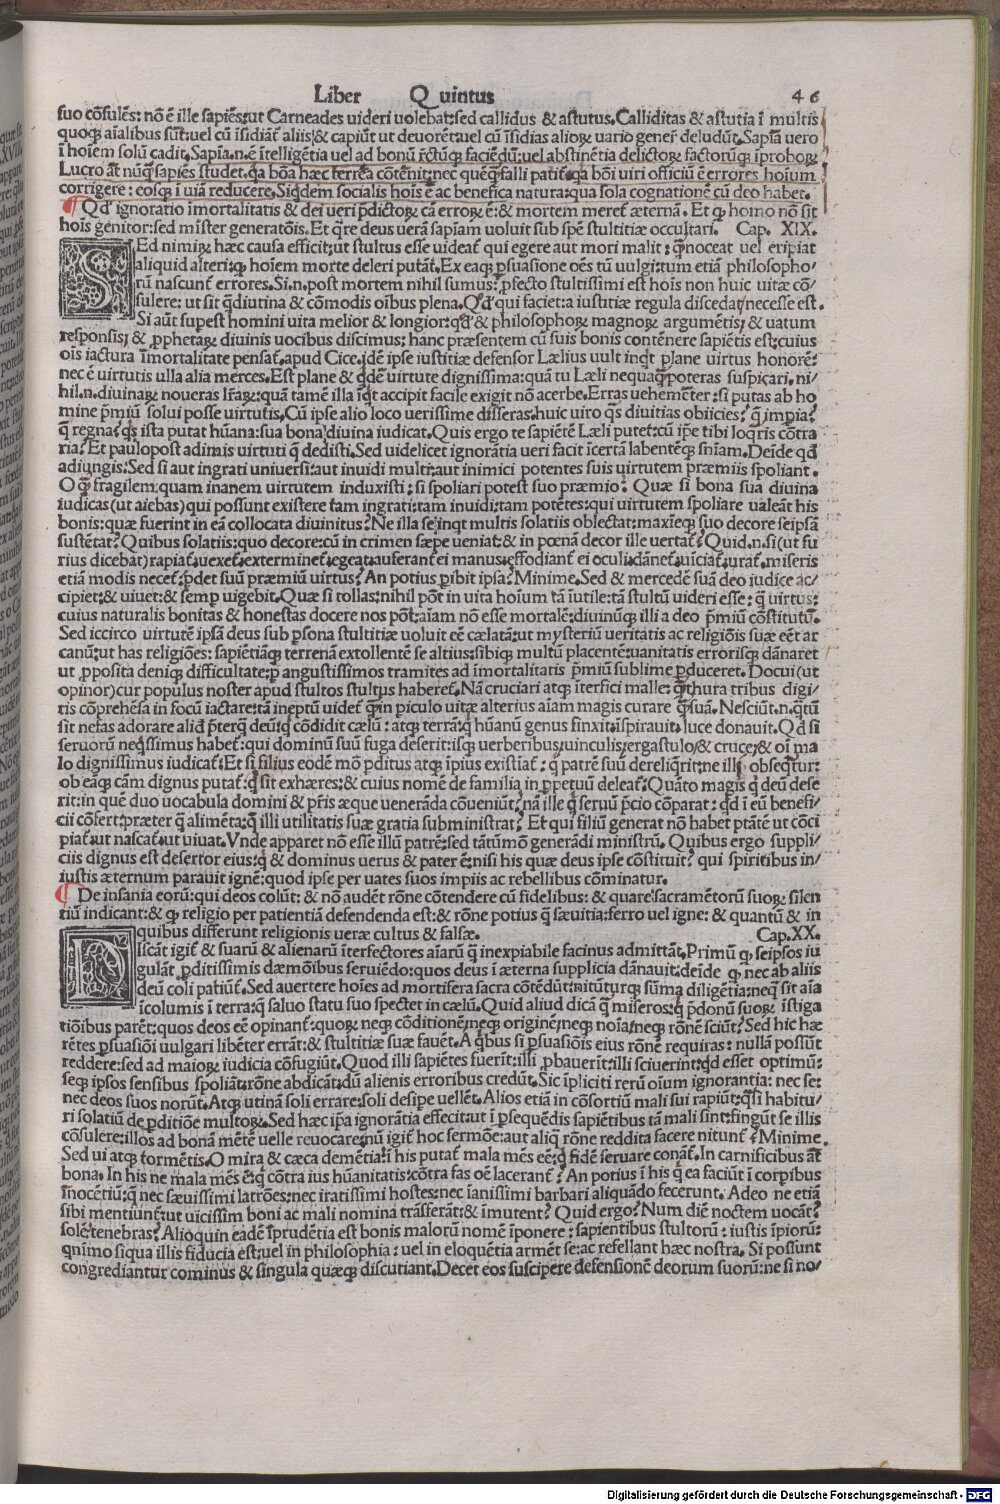 Liber Quintus 46
suo cōsulēs: nō ē ille sapiēs: ut Carneades uideri uolebat: sed callidus & astutus. Calliditas & astutia ī multis
quoqȝ aīalibus sūt: uel cū īsidiāt aliis: & capiūt ut deuorēt: uel cū īsidias alioꝝ uario generе deludūt. Sapīa uero
ī hoīem solū cadit. Sapīa.n.ē ītelligētia uel ad bonū rectūqȝ faciēdū: uel abstinētia delictoꝝ factorūqȝ īproboꝝ
Lucro aūt nūqȝ sapiēs studet. qa bōa hæc terrēa cōtēnit: nec quēqȝ falli patit. qa bōi uiri officiū ē errores hoīum
corrigere: eosqȝ ī uiā reducere. Siqdem socialis hoīs ē ac benefica natura: qua sola cognationē cū deo habet.
Qd ignoratio īmortalitatis & dei ueri p̄dictoꝝ cā erroꝝ ē: & mortem meret æternā. Et qȝ homo nō sit
hoīs genitor: sed mīster generatōis. Et qre deus uerā sapīam uoluit sub spē stultitiæ occultari. Cap. XIX.
SEd nimiꝝ hæc causa efficit: ut stultus esse uideat qui egere aut mori malit: q̄ noceat uel eripiat
aliquid alteri: qȝ hoīem morte deleri putāt. Ex eaqȝ ꝑsuasione oēs tū uulgi: tum etiā philosopho/
rū nascunt errores. Si.n.post mortem nihil sumus: ꝓfecto stultissimi est hoīs non huic uitæ cō/
sulere: ut sit q̄ diutina & cōmodis oībus plena. Qd qui faciet: a iustitiæ regula discedat necesse est.
Si aūt supest homini uita melior & longior: qd & philosophoꝝ magnoꝝ argumētis: & uatum
responsis: & ꝓphetaꝝ diuinis uocibus discimus: hanc præsentem cū suis bonis contēnere sapiētis est: cuius
oīs iactura īmortalitate pensat. apud Cice. idē ipse iustitiæ defensor Lælius uult inqt plane uirtus honorē:
nec ē uirtutis ulla alia merces. Est plane & qdē uirtute dignissima: quā tu Læli nequaq̄ poteras suspicari. ni/
hil.n.diuinaꝝ noueras lr̄aꝝ: quā tamē illa īqt accipit facile exigit nō acerbe. Erras uehemēter: si putas ab ho
mine p̄miū solui posse uirtutis. Cū ipse alio loco uerissime disseras: huic uiro qs diuitias obiicies? q̄ impia?
q̄ regna? qs ista putat hūana: sua bona diuina iudicat. Quis ergo te sapiētē Læli putet: cū ip̄e tibi loqris cōtra
ria? Et paulopost adimis uirtuti q̄ dedisti. Sed uidelicet ignorātia ueri facit īcertā labentēqȝ sn̄iam. Deīde qd
adiungis: Sed si aut ingrati uniuersi: aut inuidi multi: aut inimici potentes suis uirtutem præmiis spoliant.
O q̄ fragilem: quam inanem uirtutem induxisti: si spoliari potest suo præmio? Quæ si bona sua diuina
iudicas (ut aiebas) qui possunt existere tam ingrati: tam inuidi: tam potētes: qui uirtutem spoliare ualeāt his
bonis: quæ fuerint in eā collocata diuinitus? Ne illa se inqt multis solatiis oblectat: maxīeqȝ suo decore seipsā
sustētat? Quibus solatiis: quo decore: cū in crimen sæpe ueniat: & in pœnā decor ille uertat? Quid.n.si (ut fu
rius dicebat) rapiat: uexet: exterminet: egeat: auferant ei manus: effodiant ei oculi: dānet: uīciat: urat. miseris
etiā modis necet: ꝑdet suū præmiū uirtus? An potius ꝑibit ipsa? Minime. Sed & mercedē suā deo iudice ac/
cipiet: & uiuet: & semp uigebit. Quæ si tollas: nihil pōt in uita hoīum tā īutile: tā stultū uideri esse: q̄ uirtus:
cuius naturalis bonitas & honestas docere nos pōt: aīam nō esse mortalē: diuinūqȝ illi a deo p̄miū cōstitutū.
Sed iccirco uirtutē ipsā deus sub ꝑsona stultitiæ uoluit eē cælatā: ut mysteriū ueritatis ac religiōis suæ eēt ar
canū: ut has religiōes: sapiētiāqȝ terrenā extollentē se altius: sibiqȝ multū placentē: uanitatis errorisqȝ dānaret
ut ꝓposita deniqȝ difficultate: ꝑ angustissimos tramites ad īmortalitatis p̄miū sublime ꝑduceret. Docui (ut
opinor) cur populus noster apud stultos stultus haberet. Nā cruciari atqȝ īterfici malle: q̄ thura tribus digi/
tis cōprehēsa in focū iactare: tā ineptū uidet q̄ in piculo uitæ alterius aīam magis curare q̄ suā. Nesciūt.n.qtū
sit nefas adorare aliqd p̄terqȝ deū: qȝ cōdidit cælū: atqȝ terrā: q̄ hūanū genus finxit: īspirauit: luce donauit. Qd si
seruorū neqssimus habet: qui dominū suū fuga deserit: isqȝ uerberibus: uinculis: ergastulo: & cruce: & oī ma
lo dignissimus iudicat: Et si filius eodē mō ꝑditus atqȝ īpius existiat: q̄ patrē suū dereliqrit: ne illi obseqtur:
ob eāqȝ cām dignus putat: q̄ sit exhæres: & cuius nomē de familia in ꝑpetuū deleat? Quāto magis q̄ deū dese
rit: in quē duo uocabula domini & pr̄is æque uenerāda cōueniūt? nā ille q̄ seruū p̄cio cōparat: qd ī eū benefi/
cii cōfert: præter q̄ alimēta: q̄ illi utilitatis suæ gratia subministrat? Et qui filiū generat nō habet ptātē ut cōci
piat: ut nascat: ut uiuat. Vnde apparet nō esse illū patrē: sed tātūmō generādi ministrū. Quibus ergo suppli/
ciis dignus est desertor eius: q̄ & dominus uerus & pater ē: nisi his quæ deus ipse cōstituit? qui spiritibus in/
iustis æternum parauit ignē: quod ipse per uates suos impiis ac rebellibus cōminatur.
De insania eorū: qui deos colūt: & nō audēt rōne cōtendere cū fidelibus: & quare sacramētorū suoꝝ silen
tiū indicant: & qȝ religio per patientiā defendenda est: & rōne potius q̄ sæuitia: ferro uel igne: & quantū & in
quibus differunt religionis ueræ cultus & falsæ. Cap. XX.
DIscāt igit & suarū & alienarū īterfectores aīarū q̄ inexpiabile facinus admittāt. Primū qȝ seipsos iu
gulāt ꝑditissimis dæmōibus seruiēdo: quos deus ī æterna supplicia dānauit: deīde qȝ nec ab aliis
deū coli patiūt. Sed auertere hoīes ad mortifera sacra cōtēdūt: nitūturqȝ sūma diligētia: neqȝ sit aīa
īcolumis ī terra: q̄ saluo statu suo spectet in cælū. Quid aliud dicā q̄ miseros: q̄ p̄donū suoꝝ īstiga
tiōibus parēt: quos deos eē opinant: quoꝝ neqȝ cōditionē: neqȝ originē: neqȝ noīa: neqȝ rōnē sciūt? Sed hic hæ
rētes ꝑsuasiōi uulgari libēter errāt: & stultitiæ suæ fauēt. A qbus si ꝑsuasiōis eius rōnē requiras: nullā possūt
reddere: sed ad maioꝝ iudicia cōfugiūt. Quod illi sapiētes fuerīt: illi ꝓbauerīt: illi sciuerint: qd esset optimū:
seqȝ ipsos sensibus spoliāt: rōne abdicāt: dū alienis erroribus credūt. Sic īpliciti rerū oīum ignorantia: nec se:
nec deos suos norūt. Atqȝ utinā soli errare: soli desipe uellēt. Alios etiā in cōsortiū mali sui rapiūt: qsi habitu/
ri solatiū de ꝑditiōe multoꝝ. Sed hæc ip̄a ignorātia effecit: ut ī ꝑsequēdis sapiētibus tā mali sint: fingūt se illis
cōsulere: illos ad bonā mētē uelle reuocare: nū igit hoc sermōe: aut aliq̄ rōne reddita facere nitunt? Minime.
Sed ui atqȝ tormētis. O mira & cæca demētia: ī his putat mala mēs eē: q̄ fidē seruare conāt. In carnificibus aūt
bona. In his ne mala mēs ē: q̄ cōtra ius hūanitatis: cōtra fas oē lacerant? An potius ī his q̄ ea faciūt ī corpibus
īnocētiū: q̄ nec sæuissimi latrōes: nec iratissimi hostes: nec īanissimi barbari aliquādo fecerunt. Adeo ne etiā
sibi mentiunt: ut uicissim boni ac mali nomina trāsferāt: & īmutent? Quid ergo? Num diē noctem uocāt?
solē tenebras? Alioquin eadē īprudētia est bonis malorū nomē īponere: sapientibus stultorū: iustis īpiorū:
qnimo siqua illis fiducia est: uel in philosophia: uel in eloquētia armēt se: ac refellant hæc nostra. Si possunt
congrediantur cominus & singula quæqȝ discutiant. Decet eos suscipere defensionē deorum suorū: ne si no/
Digitalisierung gefördert durch die Deutsche Forschungsgemeinschaft - DFG